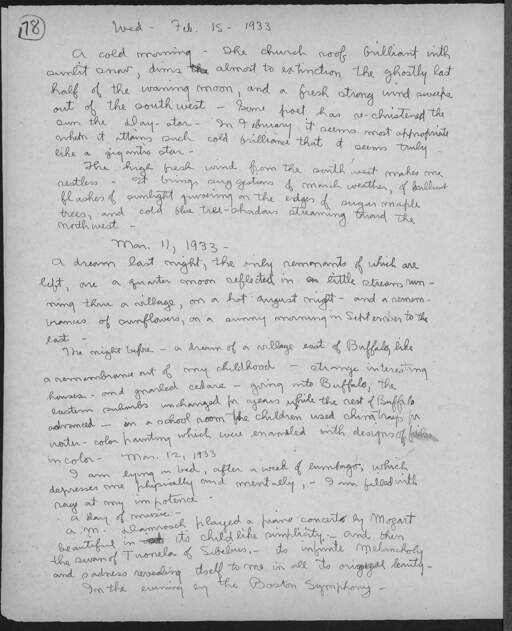 78
Wed - Feb. 15 - 1933
A cold morning - The church roof brilliant with
sunlit snow, dims the almost to extinction the ghostly last
half of the waning moon, and a fresh strong wind sweeps
out of the southwest - Some poet has re-christened the
sun the day-star - In February it seems most appropriate
when it attains such cold brilliance that it seems truly
like a gigantic star -
The high fresh wind from the south west makes me
restless - It brings suggestions of March weather, of brilliant
flashes of sunlight quivering on the edges of sugar maple
trees, and cold blue tree-shadows streaming toward the
northwest -
Mar. 11, 1933 -
A dream last night, the only remnants of which are
left, are a quarter moon reflected in little streams run-
ning thru a village, on a hot August night - and a remem-
brance of sunflowers, on a sunny morning in September to the
east -
The night before - a dream of a village east of Buffalo, like
a remembrance out of my childhood - strange interesting
houses - and gnarled cedars - going into Buffalo, the
eastern suburbs unchanged for years while the rest of Buffalo
advanced - in a school room the children used china trays for
water-color painting which were enameled with designs of
in color - Mar. 12, 1933
I am lying in bed, after a week of lumbago, which
depresses me physically and mentally, - I am filled with
rage at my impotence -
A day of music: -
A.M. - Damrosch played a piano concerto by Mozart
beautiful in its childlike simplicity - and then
the swan of Tuonela of Sibelius, - its infinite melancholy
and sadness revealing itself to me in all its original beauty -
In the evening by the Boston Symphony -